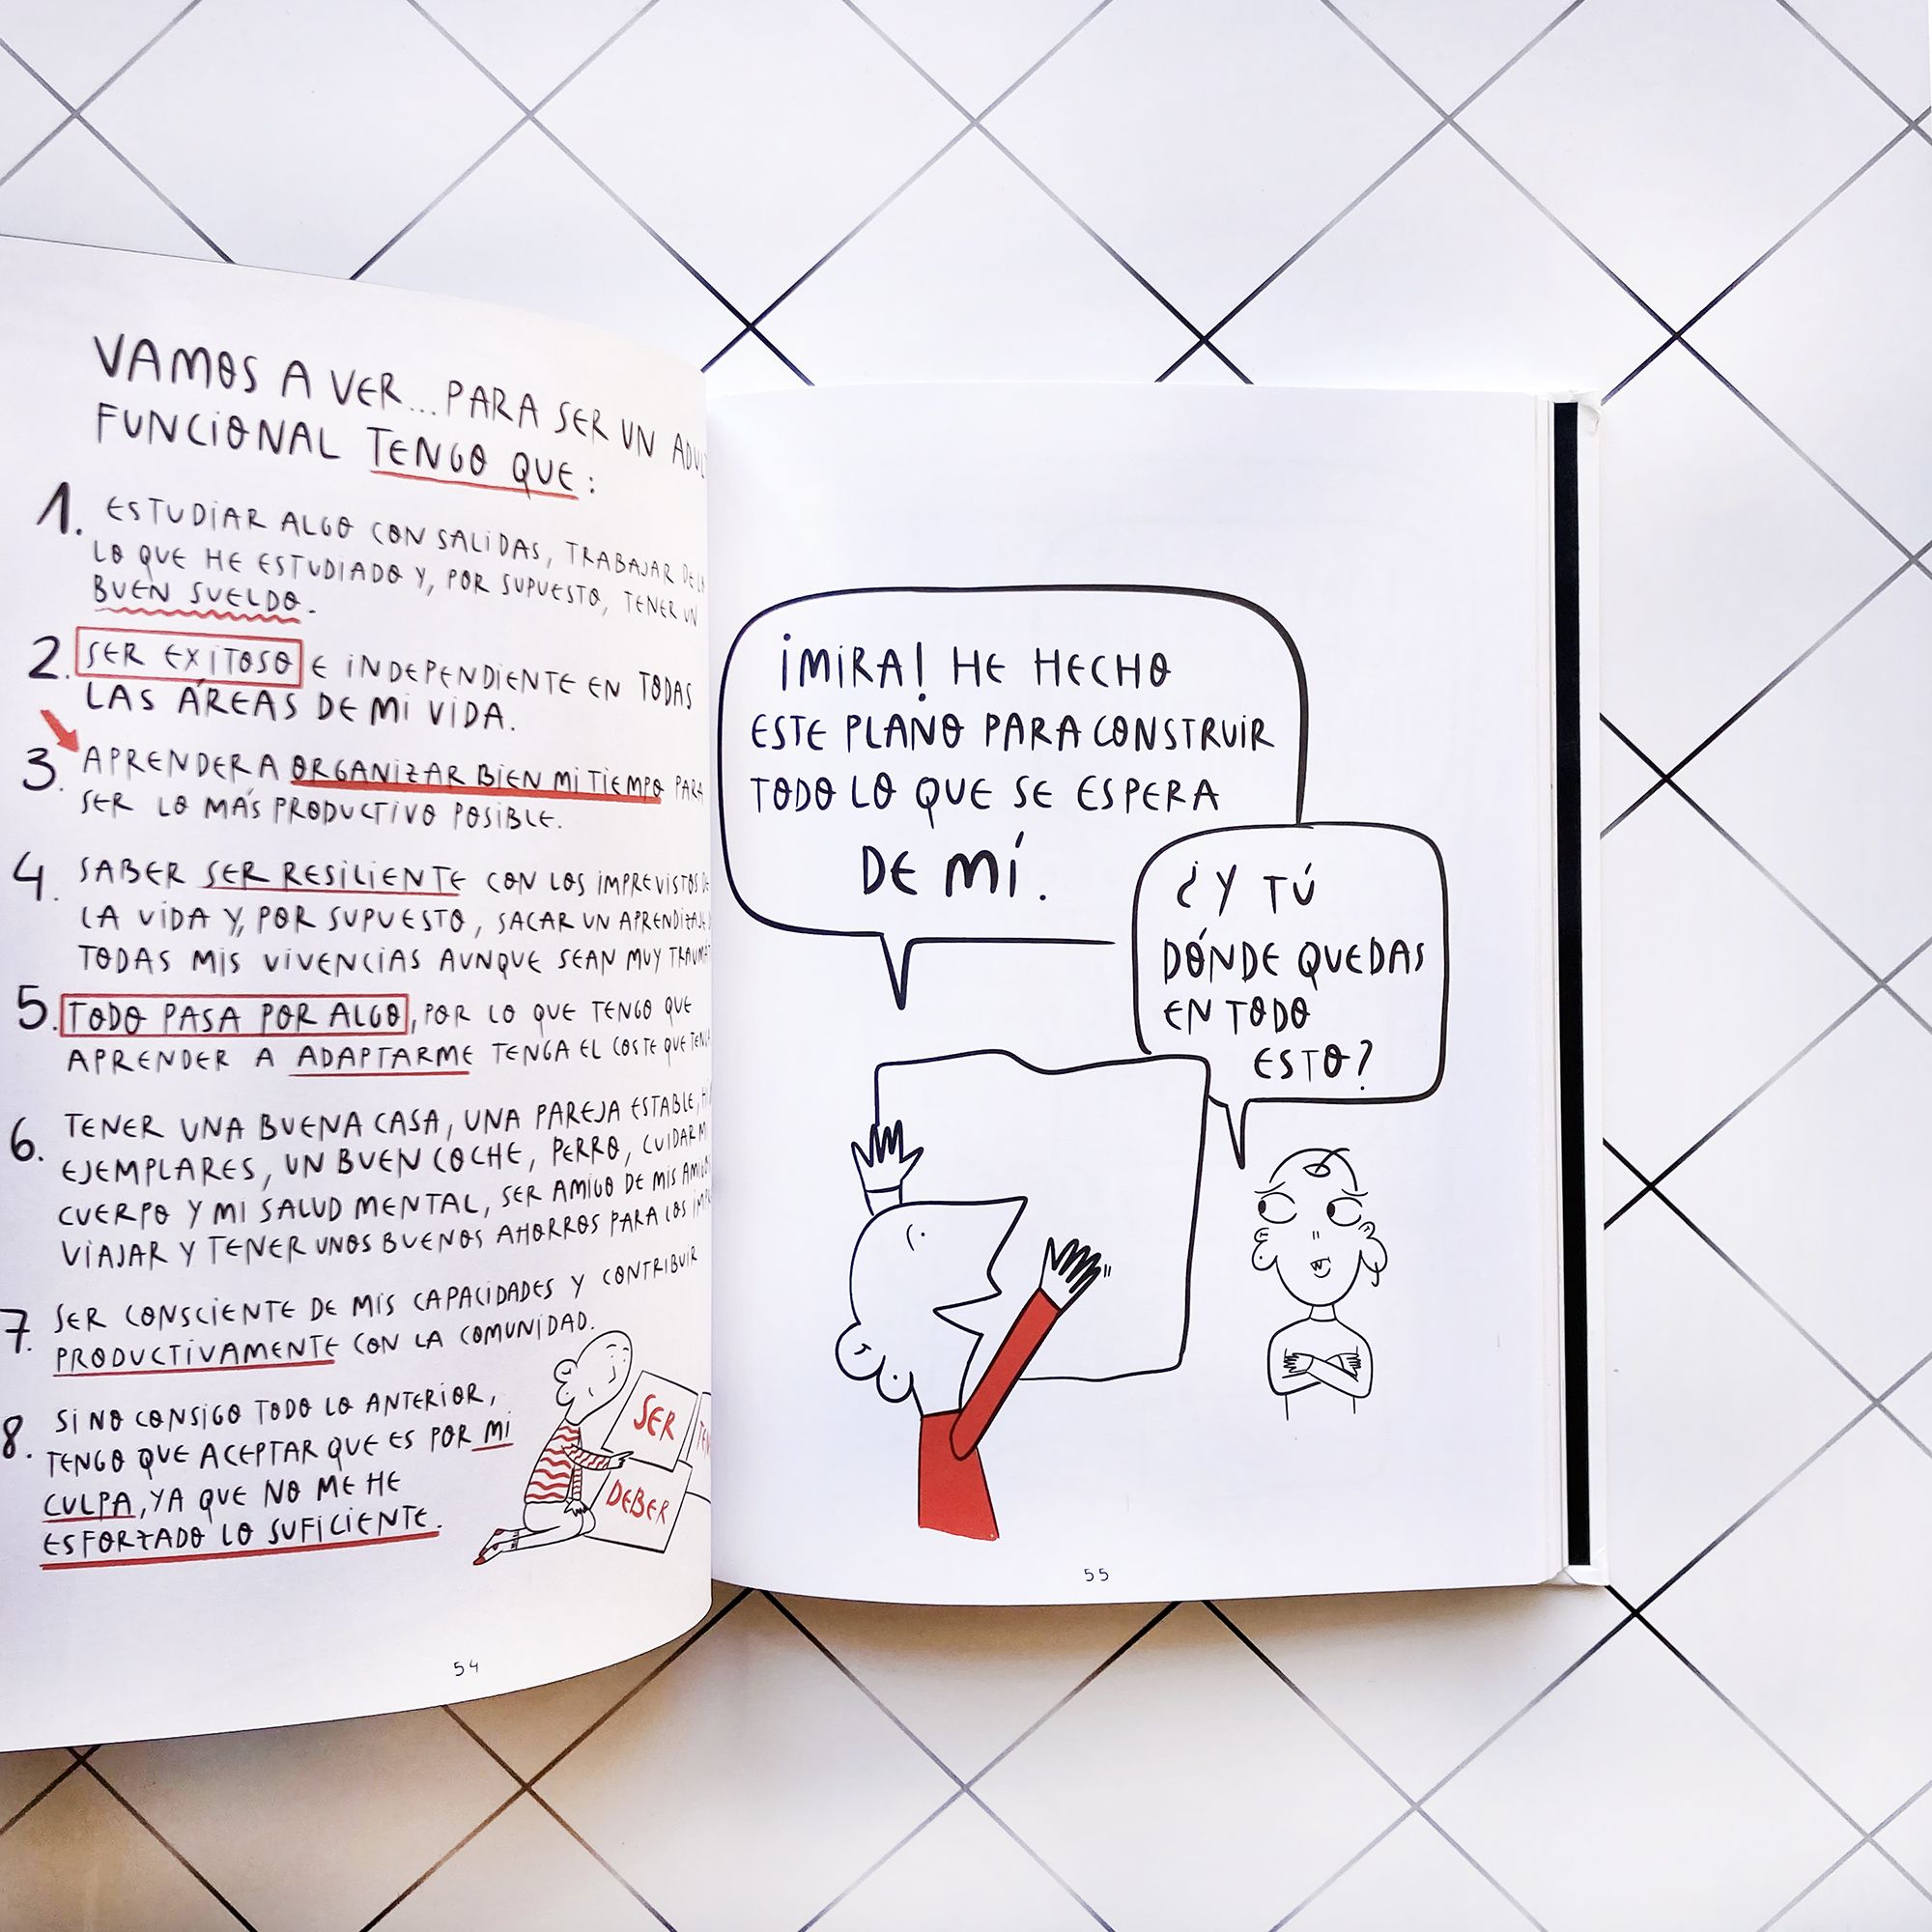 VAMOS A VER... PARA SER UN
FUNCIONAL TENGO QUE:
1. ESTUDIAR ALGO CON SALIDAS, TRABAJAR
LO QUE HE ESTUDIADO Y, POR SUPUESTO, TENER UN
BUEN SUELDO.
2. SER EXITOSO E INDEPENDIENTE EN TODAS
LAS ÁREAS DE MI VIDA.
3. APRENDER A ORGANIZAR BIEN MI TIEMPO PARA
SER LO MÁS PRODUCTIVO POSIBLE.
4. SABER SER RESILIENTE CON LOS IMPREVISTOS DE
LA VIDA Y, POR SUPUESTO, SACAR UN
TODAS MIS VIVENCIAS AUNQUE SEAN MUY
5. TODO PASA POR ALGO, POR LO QUE TENGO QUE
APRENDER A ADAPTARME TENGA EL COSTE QUE
6. TENER UNA BUENA CASA, UNA PAREJA ESTABLE,
EJEMPLARES, UN BUEN COCHE, PERRO,
CUERPO Y MI SALUD MENTAL, SER AMIGO DE MIS
VIAJAR Y TENER UNOS BUENOS AHORROS PARA LOS
7. SER CONSCIENTE DE MIS CAPACIDADES Y CONTRIBUIR
PRODUCTIVAMENTE CON LA COMUNIDAD.
8. SI NO CONSIGO TODO LO ANTERIOR,
TENGO QUE ACEPTAR QUE ES POR MI
CULPA, YA QUE NO ME HE
ESFORZADO LO SUFICIENTE.
SER
DEBER
54
¡MIRA! HE HECHO
ESTE PLANO PARA CONSTRUIR
TODO LO QUE SE ESPERA
DE MÍ.
¿Y TÚ
DÓNDE QUEDAS
EN TODO
ESTO?
55